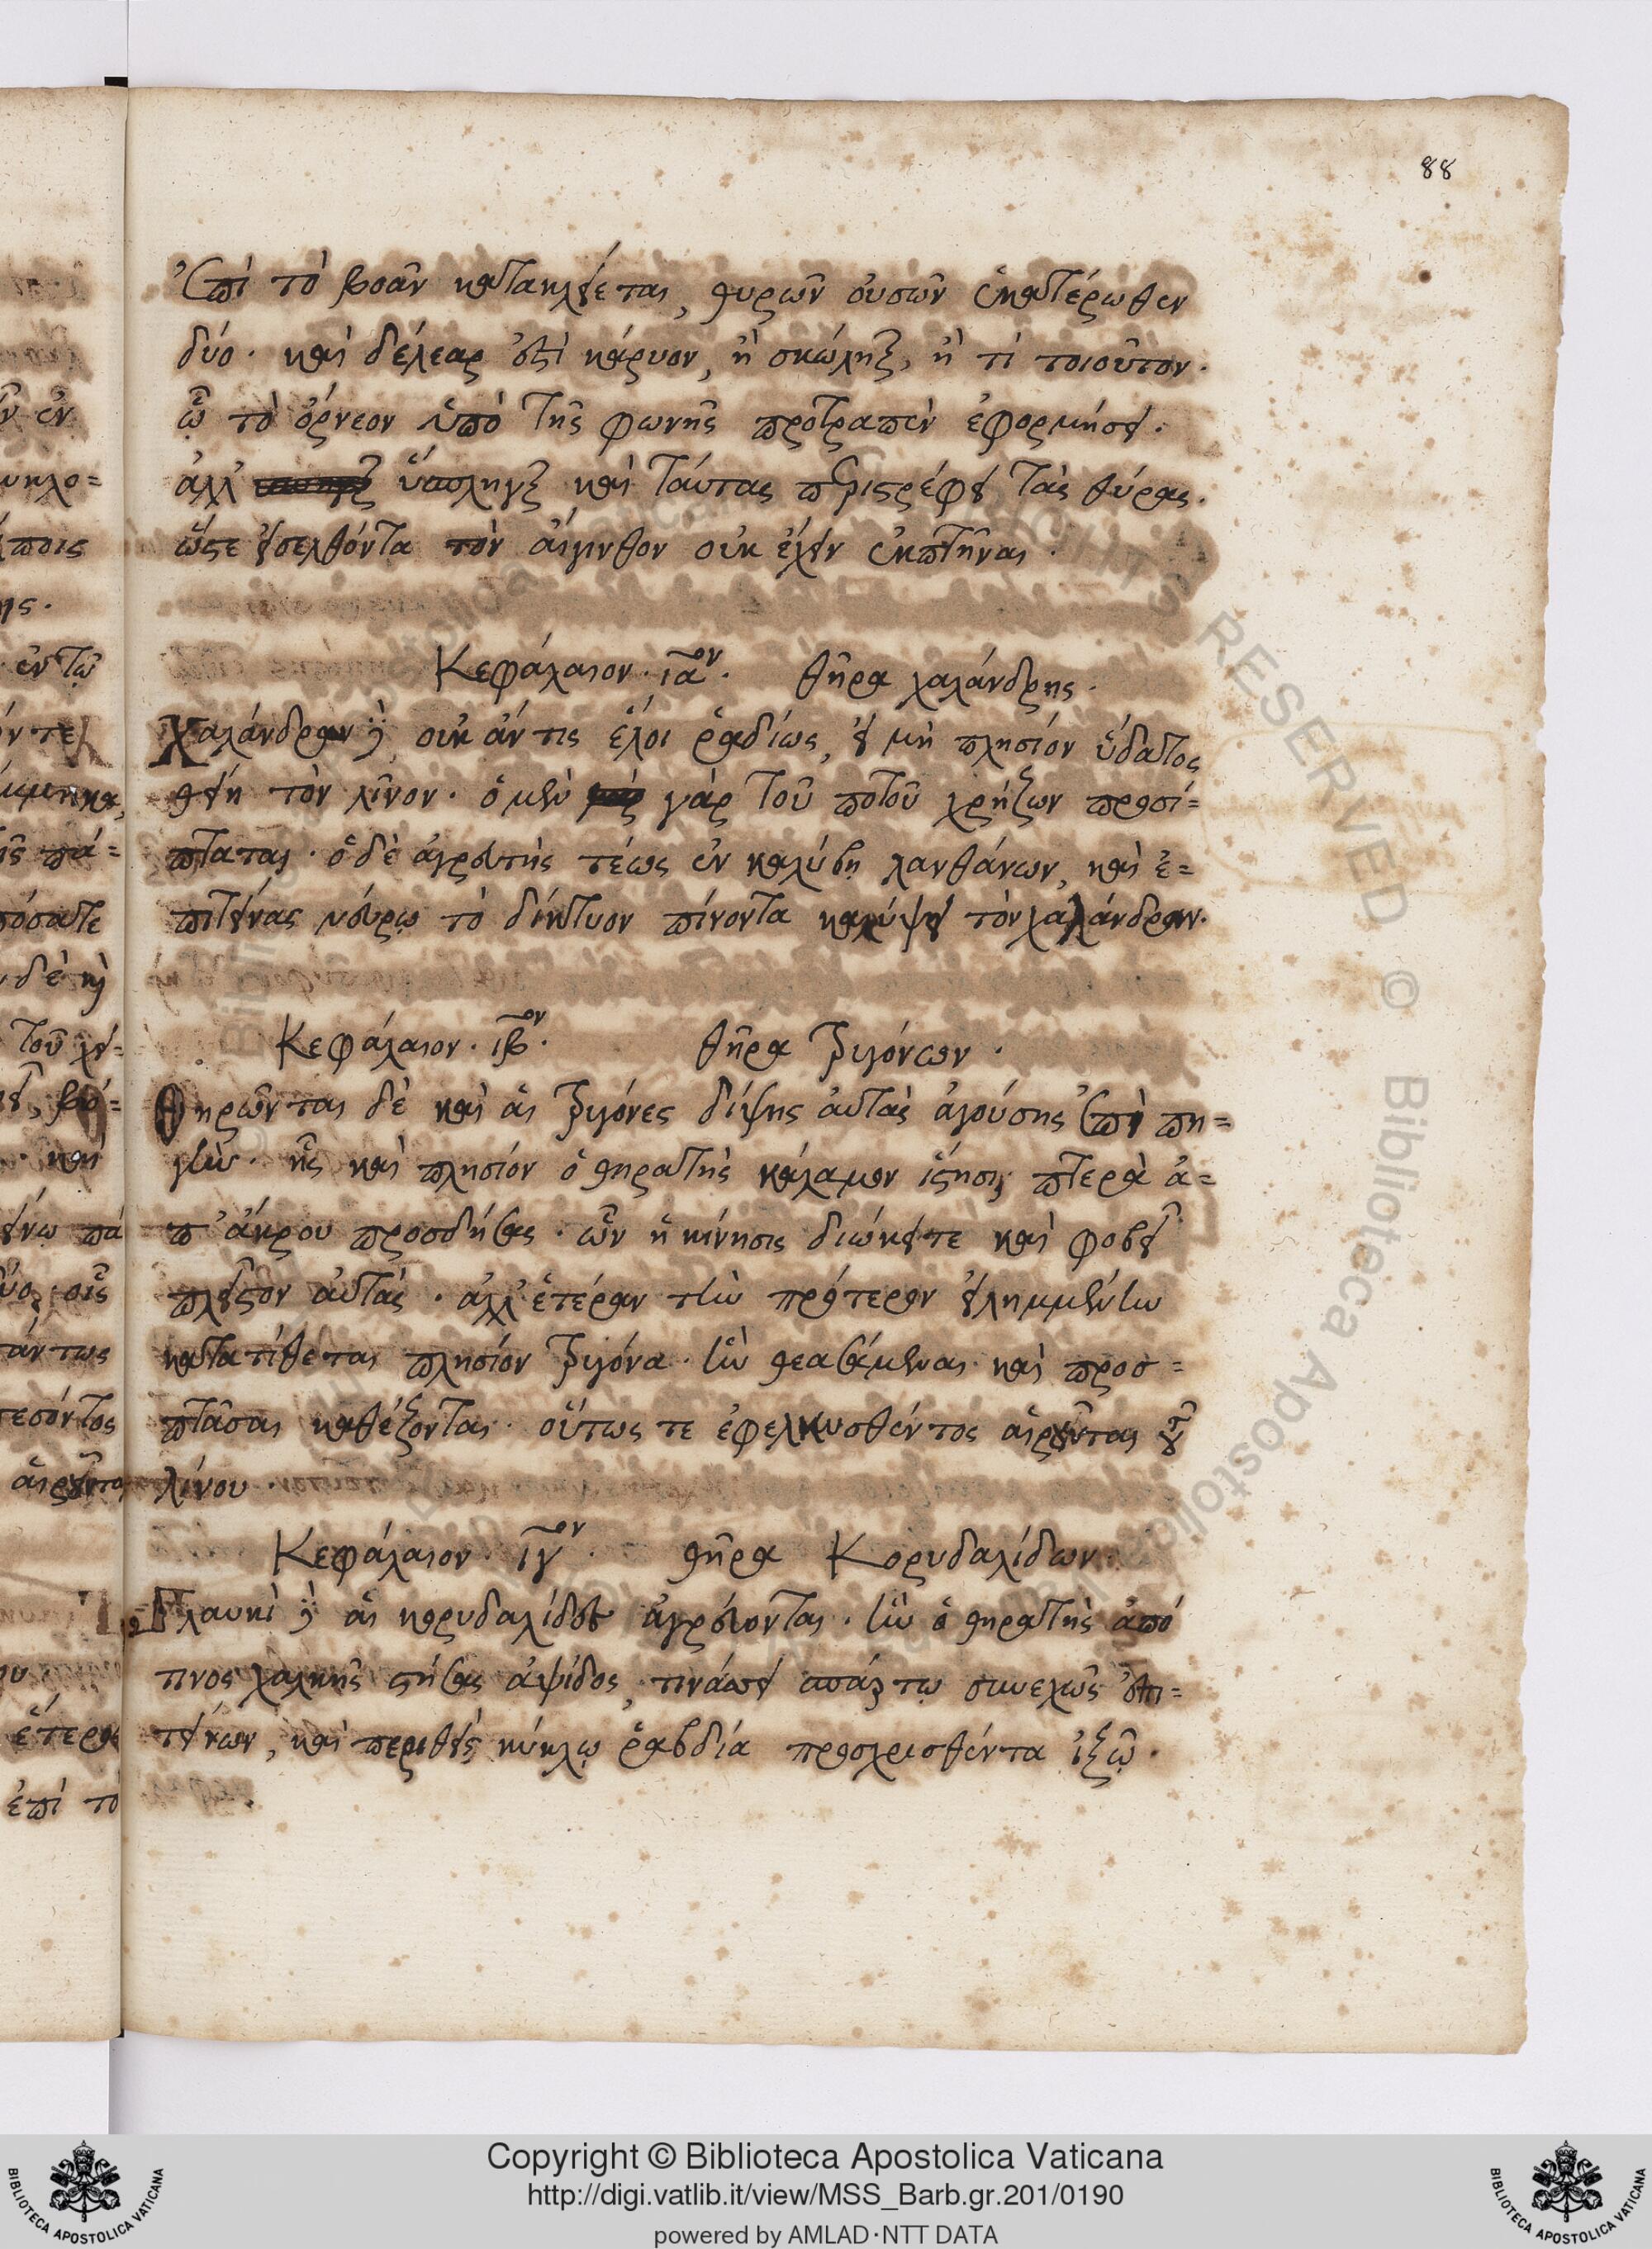 88
ἐπὶ τὸ βοᾶν κατακλείεται, θυρῶν οὐσῶν ἑκατέρωθεν
δύο· καὶ δέλεαρ ἐστὶ κάρυον, ἢ σκώληξ, ἢ τί τοιοῦτον·
ᾧ τὸ ὄρνεον ὑπὸ τῆς φωνῆς προτραπὲν ἐφορμήσει·
ἀλλ' ὕσπληγξ καὶ ταύτας περιστρέφει τὰς θύρας·
ὥστε εἰσελθόντα τὸν αἴγινθον οὐκ ἔχειν ἐκπτῆναι·
Κεφάλαιον· ια ον· θῆρα χαλάνδρης·
Χαλάνδραν δὲ, οὐκ ἄν τις ἕλοι ῥαδίως, εἰ μὴ πλησίον ὕδατος
θείη τὸν λῖνον· ὁ μὲν γὰρ τοῦ ποτοῦ χρήζων προσί=
πταται· ὁ δὲ ἀγρευτὴς τέως ἐν καλύβῃ λανθάνων, καὶ ἐ=
πιτείνας νεύρῳ τὸ δίκτυον πίνοντα καλύψει τὸν χαλάνδραν·
Κεφάλαιον· ιβ ον· θῆρα τρυγόνων·
Θηρῶνται δὲ καὶ αἱ τρυγόνες δίψης αὐτὰς ἀγούσης ἐπὶ πη=
γὴν· ἧς καὶ πλησίον ὁ θηρατὴς κάλαμον ἵστησι, πτερὰ ἀ=
π' ἄκρου προσδήσας· ὧν ἡ κίνησις διώκει τε καὶ φοβεῖ
πλεῖστον αὐτάς· ἀλλ' ἑτέραν τὴν πρότερον εἰλημμένην
κατατίθεται πλησίον τρυγόνα· ἣν θεασάμεναι καὶ προσ=
πτᾶσαι καθέζονται· οὕτως τε ἐφελκυσθέντος αἱροῦνται τοῦ
λίνου·
Κεφάλαιον· ιγ ον· θῆρα Κορυδαλίδων·
Γλαυκὶ δὲ αἱ κορυδαλίδες ἀγρεύονται· ἣν ὁ θηρατὴς ἀπό
τινος χαλκῆς στήσας ἁψίδος, τινάσσει σπάρτῳ συνεχῶς ἐπι=
τείνων, καὶ περιθεὶς κύκλῳ ῥαβδία προσχρισθέντα ἰξῷ·
Copyright © Biblioteca Apostolica Vaticana
http://digi.vatlib.it/view/MSS_Barb.gr.201/0190
powered by AMLAD·NTT DATA